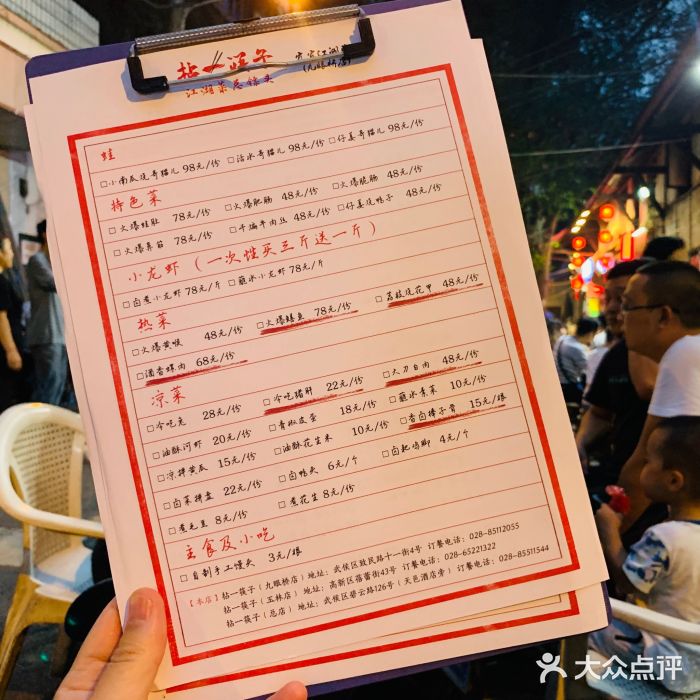 拈一筷子
江湖菜总馆头
(九眼桥店)
蛙
□小南瓜烧哥猫儿 98元/份 □活水哥猫儿 98元/份 □仔姜哥猫儿 98元/份
特色菜
□火爆蛙肚 78元/份 □火爆肥肠 48元/份 □火爆脆肠 48元/份
□火爆鼻筋 78元/份 □干煸牛肉豆 48元/份 □仔姜烧鸭子 48元/份
小龙虾（一次性买三斤送一斤）
□卤煮小龙虾 78元/斤 □蘸水小龙虾 78元/斤
热菜
□火爆黄喉 48元/份 □火爆鳝鱼 78元/份 □荔枝烧花甲 48元/份
□酒香蛏肉 68元/份
凉菜
□冷吃兔 28元/份 □冷吃猪肝 22元/份 □大刀白肉 48元/份
□油酥河虾 20元/份 □青椒皮蛋 18元/份 □蘸水素菜 10元/份
□凉拌黄瓜 15元/份 □油酥花生米 10元/份 □香卤棒子骨 15元/根
□卤菜拼盘 22元/份 □卤鸭头 6元/个 □卤粑鸡脚 4元/个
□煮毛豆 8元/份 □煮花生 8元/份
主食及小吃
□自制手工馒头 3元/根
【本店】拈一筷子（九眼桥店）地址：武侯区致民路十一街4号 订餐电话：028-85112055
拈一筷子（玉林店）地址：高新区蓓蕾街43号 订餐电话：028-65221322
拈一筷子（总店）地址：武侯区碧云路126号（天邑酒店旁）订餐电话：028-85511544
大众点评